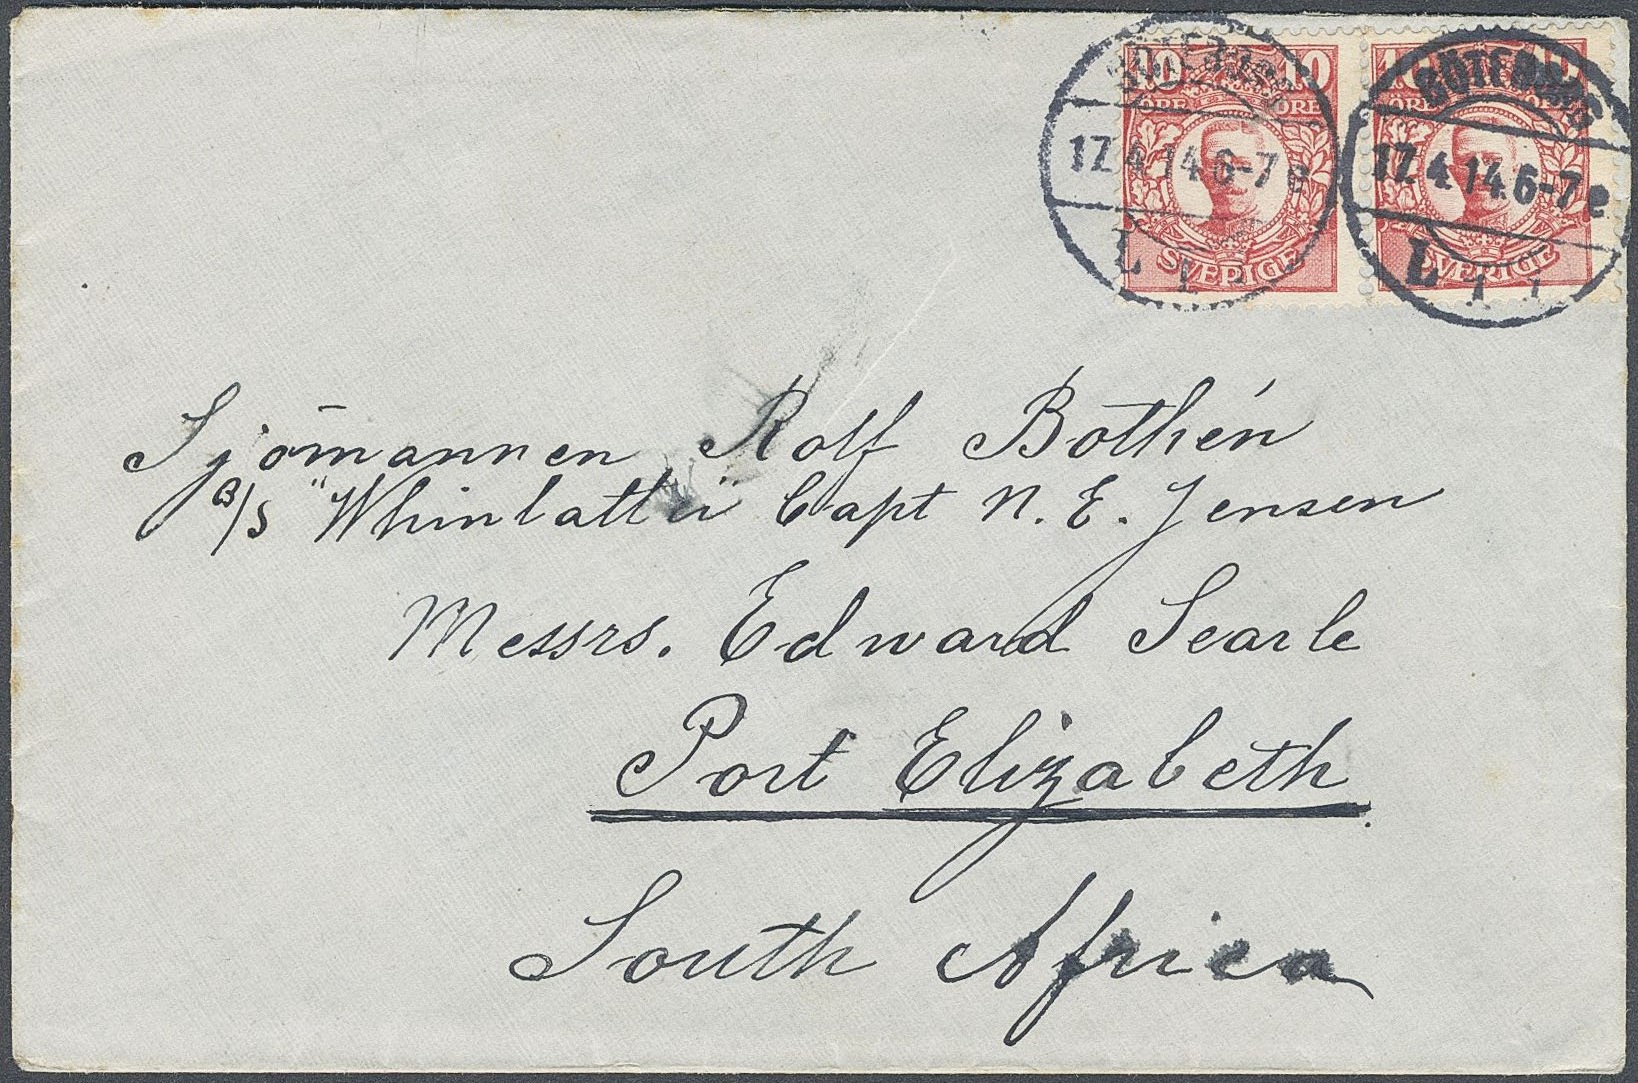 10 10
ÖRE ÖRE
SVERIGE
10 10
ÖRE ÖRE
SVERIGE
GÖTEBORG
17.4.14.6-7 e
L 1
GÖTEBORG
17.4.14.6-7 e
L 1
Sjömannen Rolf Bothén
B/S "Whinlatter" Capt N. E. Jensen
Messrs. Edward Searle
Port Elizabeth
South Africa